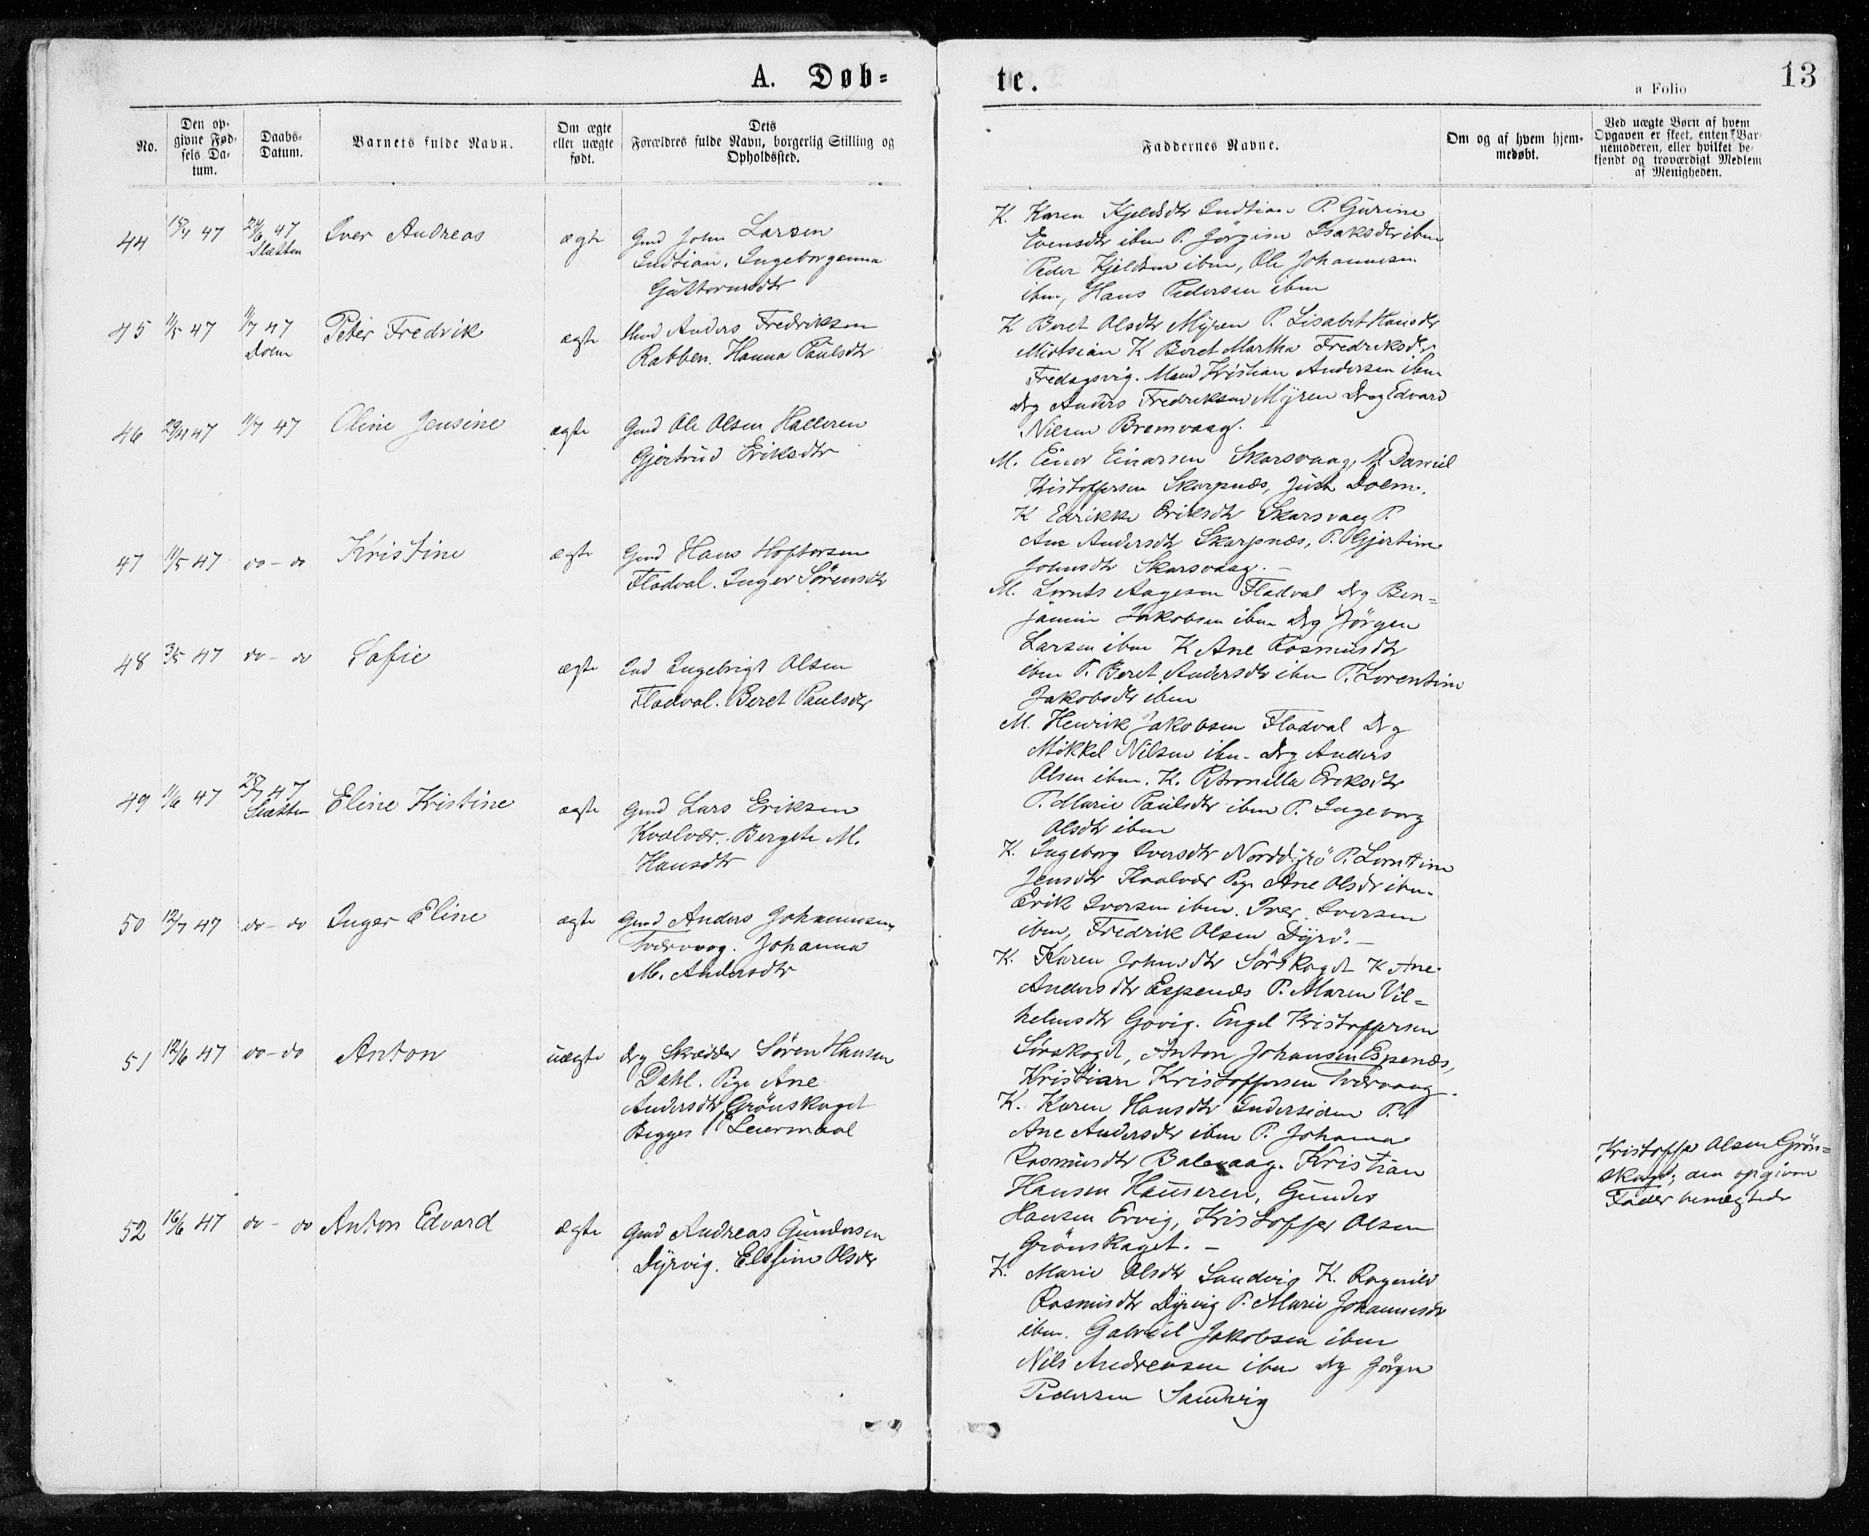 A. Døb=
te.
13
a Folio
No.
Den op-
givne Fød-
sels Da-
tum.
Daabs-
Datum.
Barnets fulde Navn.
Om ægte
eller uægte
født.
Dets
Forældres fulde Navn, borgerlig Stilling og
Opholdssted.
Faddernes Navne.
Om og af hvem hjem-
medøbt.
Ved uægte Børn af hvem
Opgaven er skeet, enten Bar-
nemoderen, eller hvilket be-
kjendt og troværdigt Medlem
af Menigheden.
44 47 24/6 47
Slætten
Iver Andreas ægte Gmd John Larsen
Indtian. Ingeborganna
Guttormsdtr
K. Karen Kjeldsdtr Indtian P. Gurine
Evensdtr ibm P. Jørgine Isaksdtr ibm
Peder Kjeldsen ibm, Ole Johannesen
ibm, Hans Pedersen ibm
45 11/5 47 11/7 47
Dolm
Peter Fredrik ægte Anders Fredriksen
Rabben. Hanna Paulsdtr
K Beret Olsdtr Myren P. Lisabet Hansdtr
K Beret Martha Fredriksdtr
Fredagsvig. Mand Kristian Andersen ibm
drg Anders Fredriksen Myren drg Edvard
Nilsen Bremvaag.
46 29/4 47 11/7 47 Oline Jensine ægte Gmd Ole Olsen Halleren
Gjertrud Eriksdtr
M. Einer Einarsen Skarsvaag, M Daniel
Kristoffersen Skarpnæs, Just Dolm.
K Eriksdtr Skarsvaag P.
Ane Andersdtr Skarpnæs, P. Gjertine
Johnsdtr Skarsvaag. –
47 11/5 47 do – do Kristine ægte Gmd Hans Hoftorsen
Fladval. Inger Sørensdtr
M. Lornts Aagesen Fladval drg Ben=
jamin Jakobsen ibm drg Jørgen
Larsen ibm K Ane Rasmusdtr
ibm P. Beret Andersdtr ibm P. Lorentine
Jakobsdtr ibm
48 3/5 47 do – do Sofie ægte Ind Ingebrigt Olsen
Fladval. Beret Paulsdtr
M. Henrik Jakobsen Fladval drg
Mikkel Nilsen ibm. drg Anders
Olsen ibm. K. Petronella Eriksdtr
P. Marie Paulsdtr ibm P. Ingeborg
Olsdtr ibm
49 11/6 47 25/7 47
Slætten
Eline Kristine ægte Gmd Lars Eriksen
Kvalvær. Bergete M.
Hansdtr
K. Ingeborg Iversdtr Norddyrø P. Lorntine
Jensdtr Kvalvær Pige Ane Olsdtr ibm.
Erik Iversen ibm. Iver Iversen
ibm, Fredrik Olsen Dyrø. –
50 12/7 47 do – do Inger Eline ægte Gmd Anders Johannesen
Tværvaag. Johanna
M. Andersdtr
K. Karen Johnsdtr Sørskaget K Ane
Andersdtr Espenæs P. Maren Vil=
helmsdtr Gøvig. Engel Kristoffersen
Sørskaget, Anton Johansen Espenæs,
Kristian Kristoffersen Tværvaag.
51 12/6 47 do – do Anton uægte drg Skrædder Søren Hansen
Dahl. Pige Ane
Andersdtr Grønskaget
Begges Leiermaal
K. Karen Hansdtr Indersiden P.
Ane Andersdtr ibm P. Johanna
Rasmusdtr Balevaag. Kristian
Hansen Hauseren, Gunder
Hansen Ervig, Kristoffer Olsen
Grønskaget. –
Kristoffer Olsen Grøn=
skaget; den opgivne
Fader benægtede
52 16/6 47 do – do Anton Edvard ægte Gmd Andreas Gundersen
Dyrvig. Elsine Olsdtr
K. Marie Olsdtr Sandvig K. Ragnild
Rasmusdtr Dyrvig P. Marie Johannesdtr
ibm. Gabriel Jakobsen ibm
Nils Andreasen ibm drg Jørgen
Pedersen Sandvig